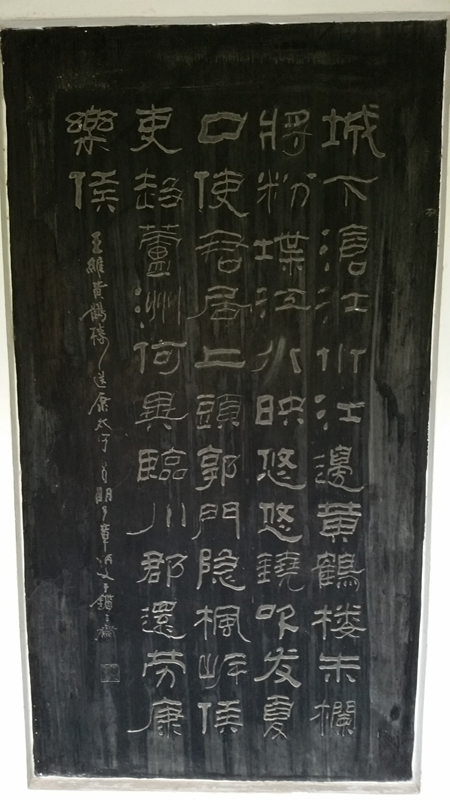 城下滄江水江邊黄鶴楼朱欄
將粉堞江水映悠悠鐃吹发夏
口使君居上頭郭門隐楓岸侯
吏趋蘆洲何異臨川郡還劳康
樂侯
王維黄鶴楼送康太守